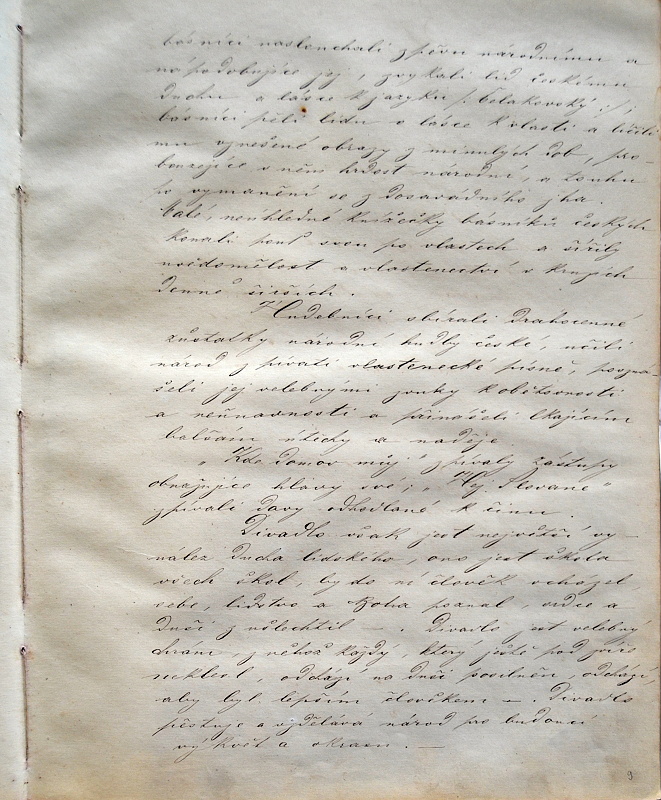 básníci naslouchali zpěvu národnímu a
nápodobujíce jej, zvykali lid českému
duchu a lásce k jazyku /: Čelakovský :/;
básníci pěli lidu o lásce k vlasti a líčili
mu vznešené obrazy z minulých dob, pro-
bouzejíce v něm hrdost národní, a touhu
po vymanění se z dosavadního jha.
Malé, neúhledné knížečky básníků českých
konali pouť svou po vlastech a šířily
uvědomělost a vlastenectví v kruzích
denně širších.
Hudebníci sbírali drahocenné
zůstatky národní hudby české, učili
národ zpívati vlastenecké písně, povzná-
šeli jej velebnými zvuky k obětovnosti
a neúnavnosti a přinášeli lkajícím
balsám útěchy a naděje
„Kde domov můj" zpívaly zástupy
obnažujíce hlavy své; „Hej Slované"
zpívali davy odhodlané k činu.
Divadlo však jest největší vy-
nález ducha lidského, ono jest škola
všech škol, by do ní člověk vcházel,
sebe, lidstvo a Boha poznal, srdce a
duši zušlechtil —. Divadlo jest velebný
chrám, z něhož každý, který ještě pod
neklesl, odchází na duši posilněn, odchází,
aby byl lepším člověkem —. Divadlo
pěstuje a vzdělává národ pro budoucí
výkvět a okrasu. —
9